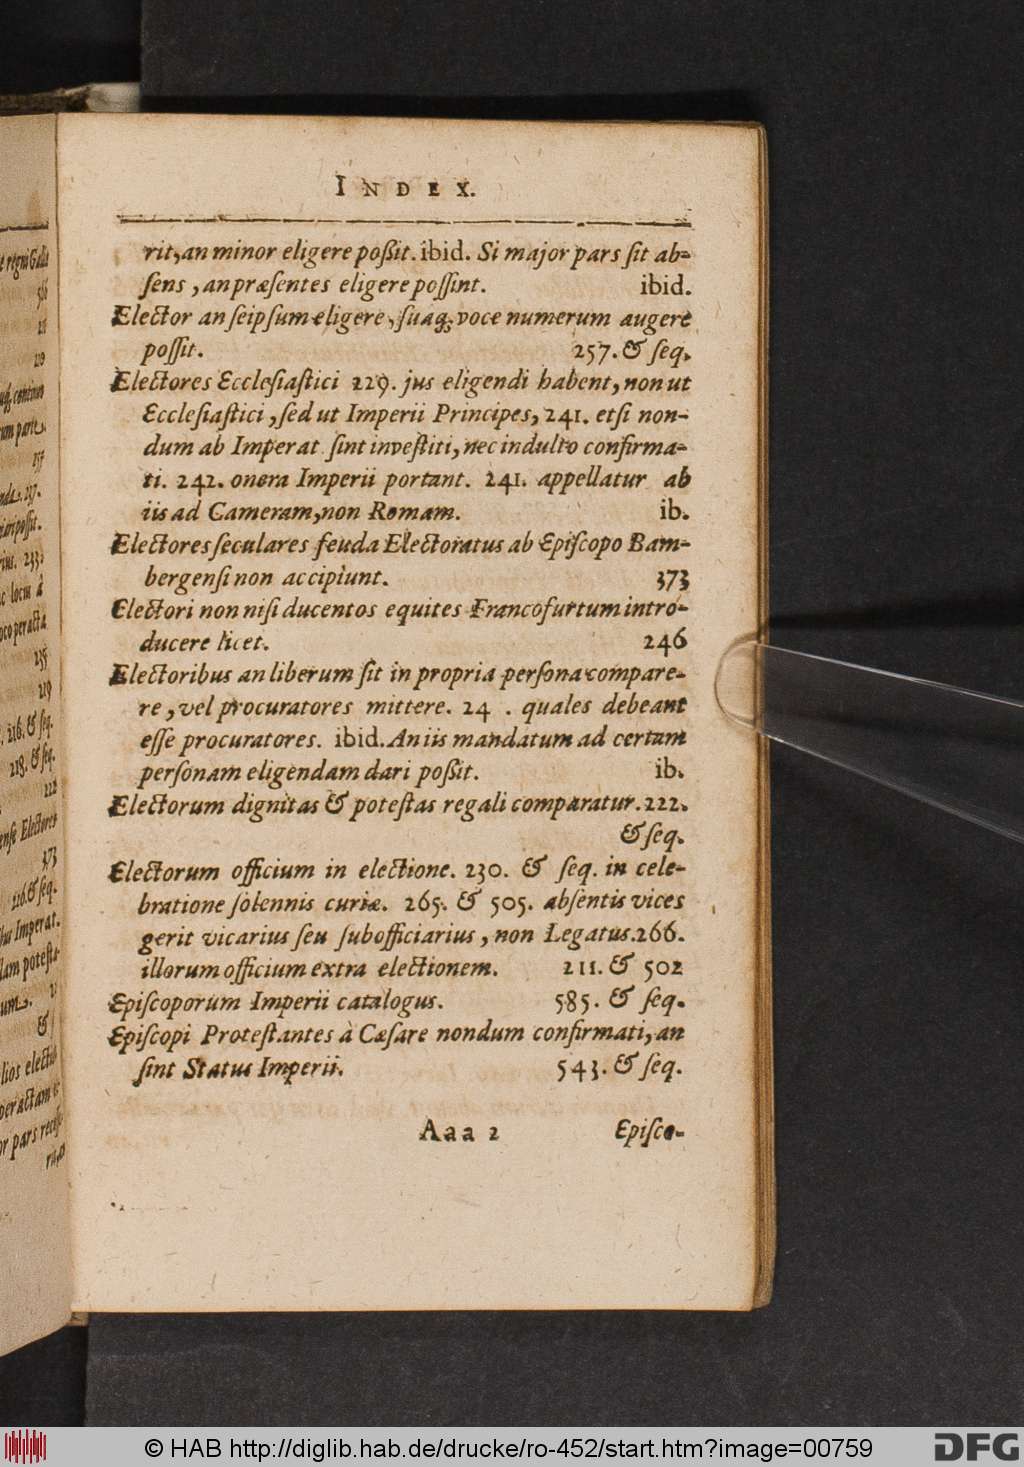 INDEX.
rit, an minor eligere poßit. ibid. Si major pars ſit ab-
ſens, an præſentes eligere poſſint. ibid.
Elector an ſeipſum eligere, ſuaq; voce numerum augere
poſſit. 257. & ſeq.
Electores Eccleſiaſtici 229. jus eligendi habent, non ut
Eccleſiaſtici, ſed ut Imperii Principes, 241. etſi non-
dum ab Imperat. ſint inveſtiti, nec indulto confirma-
ti. 242. onera Imperii portant. 241. appellatur ab
iis ad Cameram, non Romam. ib.
Electores ſeculares feuda Electoratus ab Epiſcopo Bam-
bergenſi non accipiunt. 373
Electori non niſi ducentos equites Francofurtum intro-
ducere licet. 246
Electoribus an liberum ſit in propria perſona compare-
re, vel procuratores mittere. 24 . quales debeant
eſſe procuratores. ibid. An iis mandatum ad certam
perſonam eligendam dari poßit. ib.
Electorum dignitas & poteſtas regali comparatur. 222.
& ſeq.
Electorum officium in electione. 230. & ſeq. in cele-
bratione ſolennis curiæ. 265. & 505. abſentis vices
gerit vicarius ſeu ſubofficiarius, non Legatus. 266.
illorum officium extra electionem. 211. & 502
Epiſcoporum Imperii catalogus. 585. & ſeq.
Epiſcopi Proteſtantes à Cæſare nondum confirmati, an
ſint Status Imperii. 543. & ſeq.
Aaa 2 Epiſco-
© HAB http://diglib.hab.de/drucke/ro-452/start.htm?image=00759
DFG